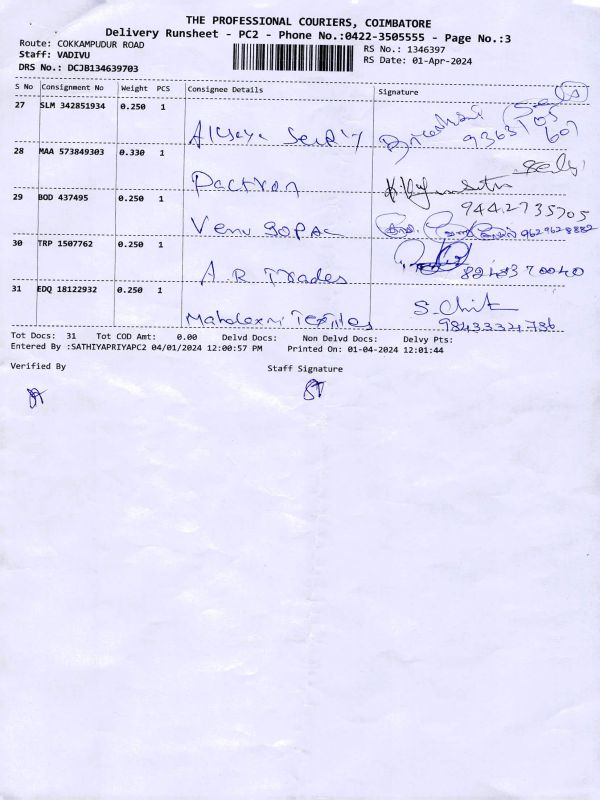 THE PROFESSIONAL COURIERS, COIMBATORE
Delivery Runsheet - PC2 - Phone No.:0422-3505555 - Page No.:3
Route: COKKAMPUDUR ROAD
Staff: VADIVU
DRS No.: DCJB134639703
RS No.: 1346397
RS Date: 01-Apr-2024
S No Consignment No Weight PCS Consignee Details Signature
27 SLM 342851934 0.250 1
28 MAA 573849303 0.330 1
Pactron
9442735205
29 BOD 437495 0.250 1
Venu GOPAL
9629628882
30 TRP 1507762 0.250 1
A R Trades
31 EDQ 18122932 0.250 1
Mahalaxmi Textiles
Tot Docs: 31 Tot COD Amt: 0.00 Delvd Docs: Non Delvd Docs: Delvy Pts:
Entered By :SATHIYAPRIYAPC2 04/01/2024 12:00:57 PM Printed On: 01-04-2024 12:01:44
Verified By
Staff Signature